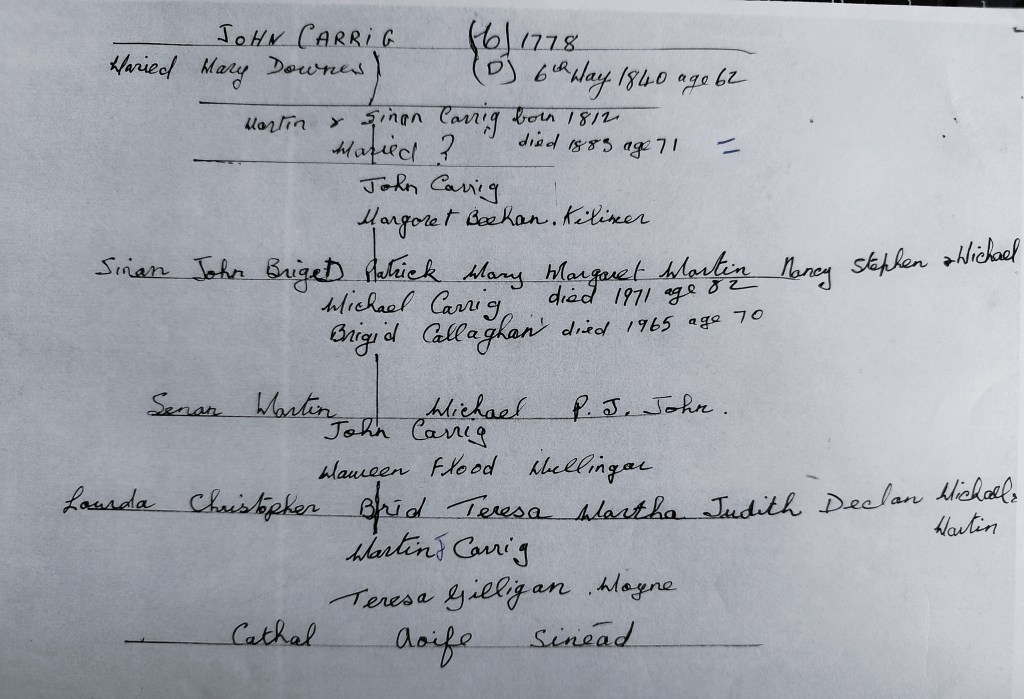 JOHN CARRIG (b) 1778
Maried Mary Downes (D) 6th May 1840 age 62
Martin & Sinon Carrig born 1812
Maried ? died 1883 age 71 =
John Carrig
Margaret Beehan. Kilimer
Sinan John Briget Patrick Mary Margaret Martin Nancy Stephen & Michael
Michael Carrig died 1971 age 82
Brigid Callaghan died 1965 age 70
Senan Martin Michael P. J. John.
John Carrig
Maureen Flood Mullingar
Lourda Christopher Bríd Teresa Martha Judith Declan Michael &
Martin
Martin J Carrig
Teresa Gilligan . Moyne
Cathal Aoife Sinéad